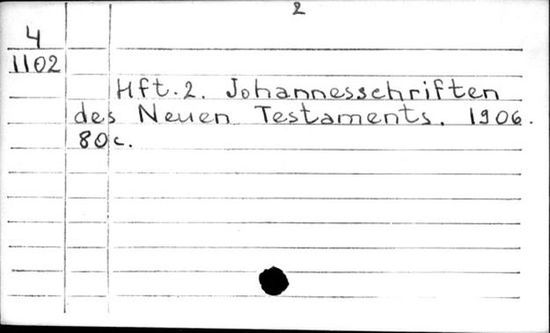 2
4
1102
Hft. 2. Johannesschriften
des Neuen Testaments. 1906.
80 c.